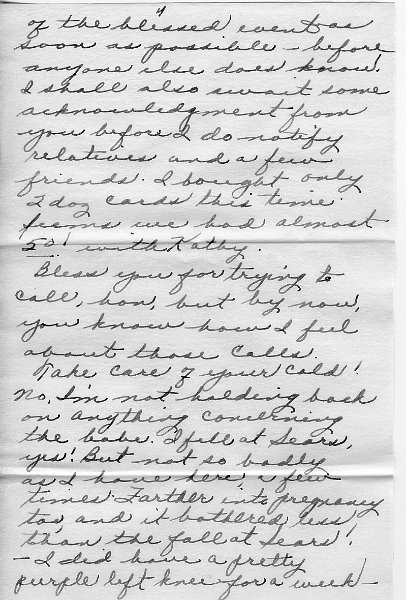 4
of the blessed event as
soon as possible - before
anyone else does know!
I shall also await some
acknowledgment from
you before I do notify
relatives and a few
friends. I bought only
2 doz cards this time.
Seems we had almost
50! with Kathy.
Bless you for trying to
call, hon, but by now,
you know how I feel
about those calls.
Take care of your cold!
No, I'm not holding back
on anything concerning
the babe. I fell at Sears,
yes! But not so badly
as I have here a few
times farther into pregnancy
too and it bothered less
than the fall at Sears!
- I did have a pretty
purple left knee for a week -